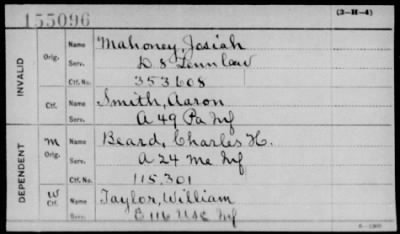 155096 (3-H-4)
INVALID
Orig. Name Mahoney, Josiah
Serv. D 8 Tenn Cav
Ctf. No. 353608
Ctf. Name Smith, Aaron
Serv. A 49 Pa Inf
DEPENDENT
M Orig. Name Beard, Charles H.
Serv. A 24 Me Inf
Ctf. No. 115,301
W Ctf. Name Taylor, William
Serv. 116 USC Inf